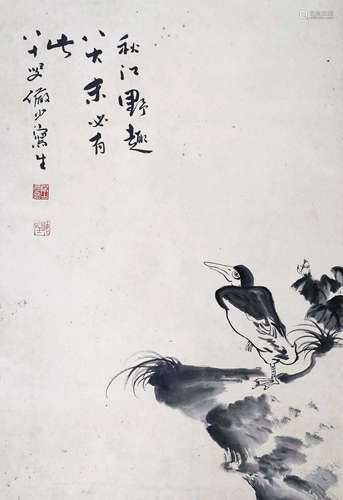 秋江野趣
八大未必有
此
八十叟儼少寫生